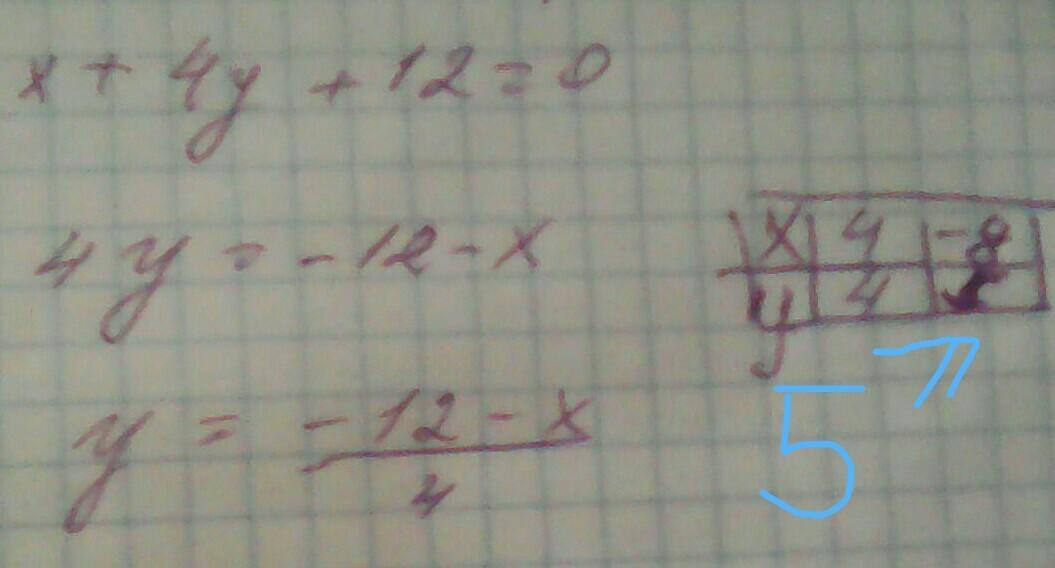 x + 4y + 12 = 0
4y = -12 - x
y = \frac{-12 - x}{4}
x | 4 | -8
y | 4 |
5